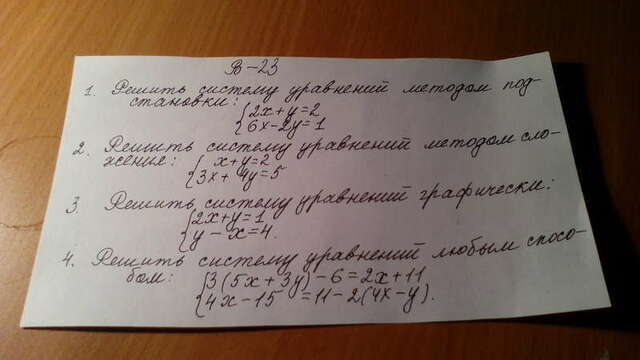 В-23
1. Решить систему уравнений методом под-
становки: { 2x+y=2
6x-2y=1
2. Решить систему уравнений методом сло-
жения: { x+y=2
3x+4y=5
3. Решить систему уравнений графически:
{ 2x+y=1
y-x=4.
4. Решить систему уравнений любым спосо-
бом: { 3(5x+3y)-6=2x+11
4x-15=11-2(4x-y).